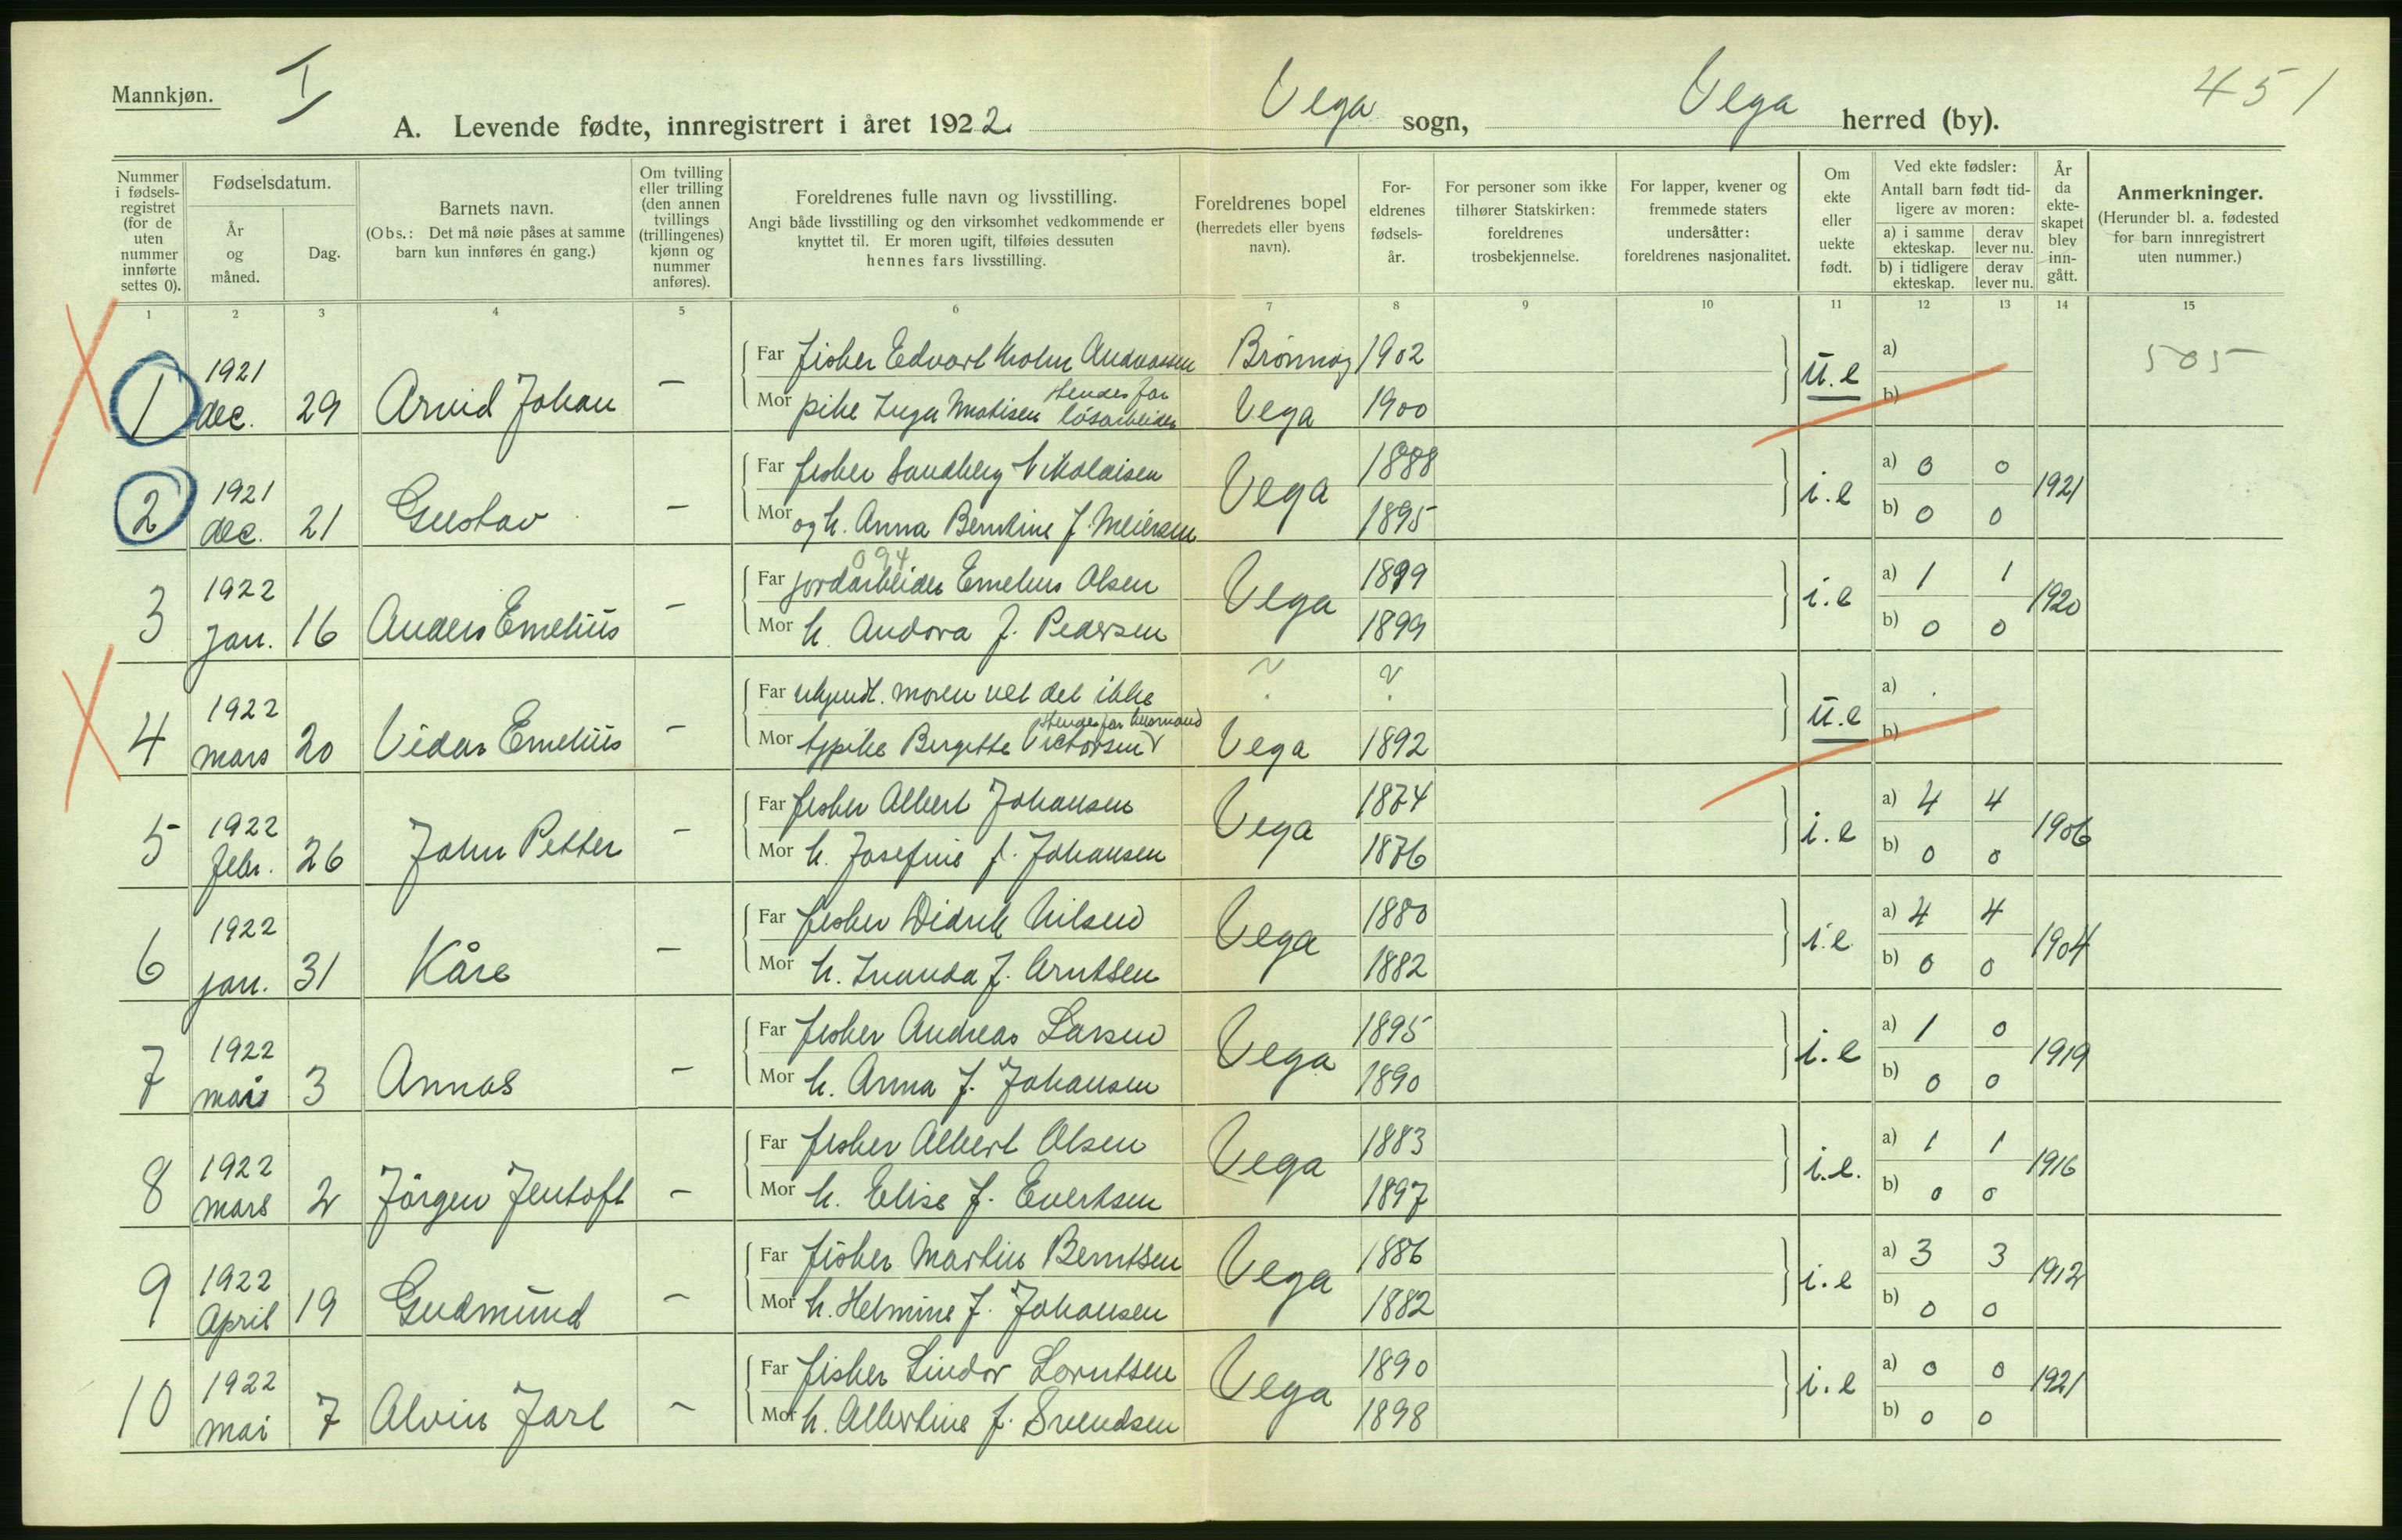 Mannkjøn.
I
451
A. Levende fødte, innregistrert i året 1922. Vega sogn, Vega herred (by).
Nummer i fødsels-registret (for de uten nummer innførte settes 0).
Fødselsdatum.
År og måned.
Dag.
Barnets navn.
(Obs.: Det må nøie påses at samme barn kun innføres én gang.)
Om tvilling eller trilling (den annen tvillings (trillingenes) kjønn og nummer anføres).
Foreldrenes fulle navn og livsstilling.
Angi både livsstilling og den virksomhet vedkommende er knyttet til. Er moren ugift, tilføies dessuten hennes fars livsstilling.
Foreldrenes bopel (herredets eller byens navn).
For-eldrenes fødsels-år.
For personer som ikke tilhører Statskirken: foreldrenes trosbekjennelse.
For lapper, kvener og fremmede staters undersåtter: foreldrenes nasjonalitet.
Om ekte eller uekte født.
Ved ekte fødsler: Antall barn født tid-ligere av moren:
a) i samme ekteskap. derav lever nu.
b) i tidligere ekteskap. derav lever nu.
År da ekte-skapet blev inn-gått.
Anmerkninger.
(Herunder bl. a. fødested for barn innregistrert uten nummer.)
1 2 3 4 5 6 7 8 9 10 11 12 13 14 15
1 1921 dec. 29 Arvid Johan -
Far fisker Edvart Brønnøy 1902 u.e a) 505
Mor pike Inga Hendes far løsarbeider Vega 1900 b)
2 1921 dec. 21 Gustav -
Far fisker Sandberg Nikolaisen Vega 1888 i.e a) 0 0 1921
Mor og h. Anna Berntine f. Meiersen 1895 b) 0 0
094
3 1922 jan. 16 Anders Emelius -
Far jordarbeider Emelius Olsen Vega 1899 i.e a) 1 1 1920
Mor h. Andora f. Pedersen 1899 b) 0 0
4 1922 mars 20 Vidar Emelius -
Far ukjendt. moren vet det ikke ? ? u.e a)
Mor pike Bergitte Victorsen Hendes far husmand Vega 1892 b)
5 1922 febr. 26 John Petter -
Far fisker Albert Johansen Vega 1874 i.e a) 4 4 1906
Mor h. Josefine f. Johansen 1876 b) 0 0
6 1922 jan. 31 Kåre -
Far fisker Didrik Nilsen Vega 1880 i.e a) 4 4 1904
Mor h. f. Arntsen 1882 b) 0 0
7 1922 mars 3 Annas -
Far fisker Andreas Larsen Vega 1895 i.e a) 1 0 1919
Mor h. Anna f. Johansen 1890 b) 0 0
8 1922 mars 2 Jörgen Jentoft -
Far fisker Albert Olsen Vega 1883 i.e. a) 1 1 1916
Mor h. Elise f. Evertsen 1897 b) 0 0
9 1922 April 19 Gudmund -
Far fisker Martin Berntsen Vega 1886 i.e a) 3 3 1912
Mor h. Helmine f. Johansen 1882 b) 0 0
10 1922 mai 7 Alvin Jarl -
Far fisker Lindor Lorntsen Vega 1890 i.e a) 0 0 1921
Mor h. Albertine f. Svendsen 1898 b) 0 0